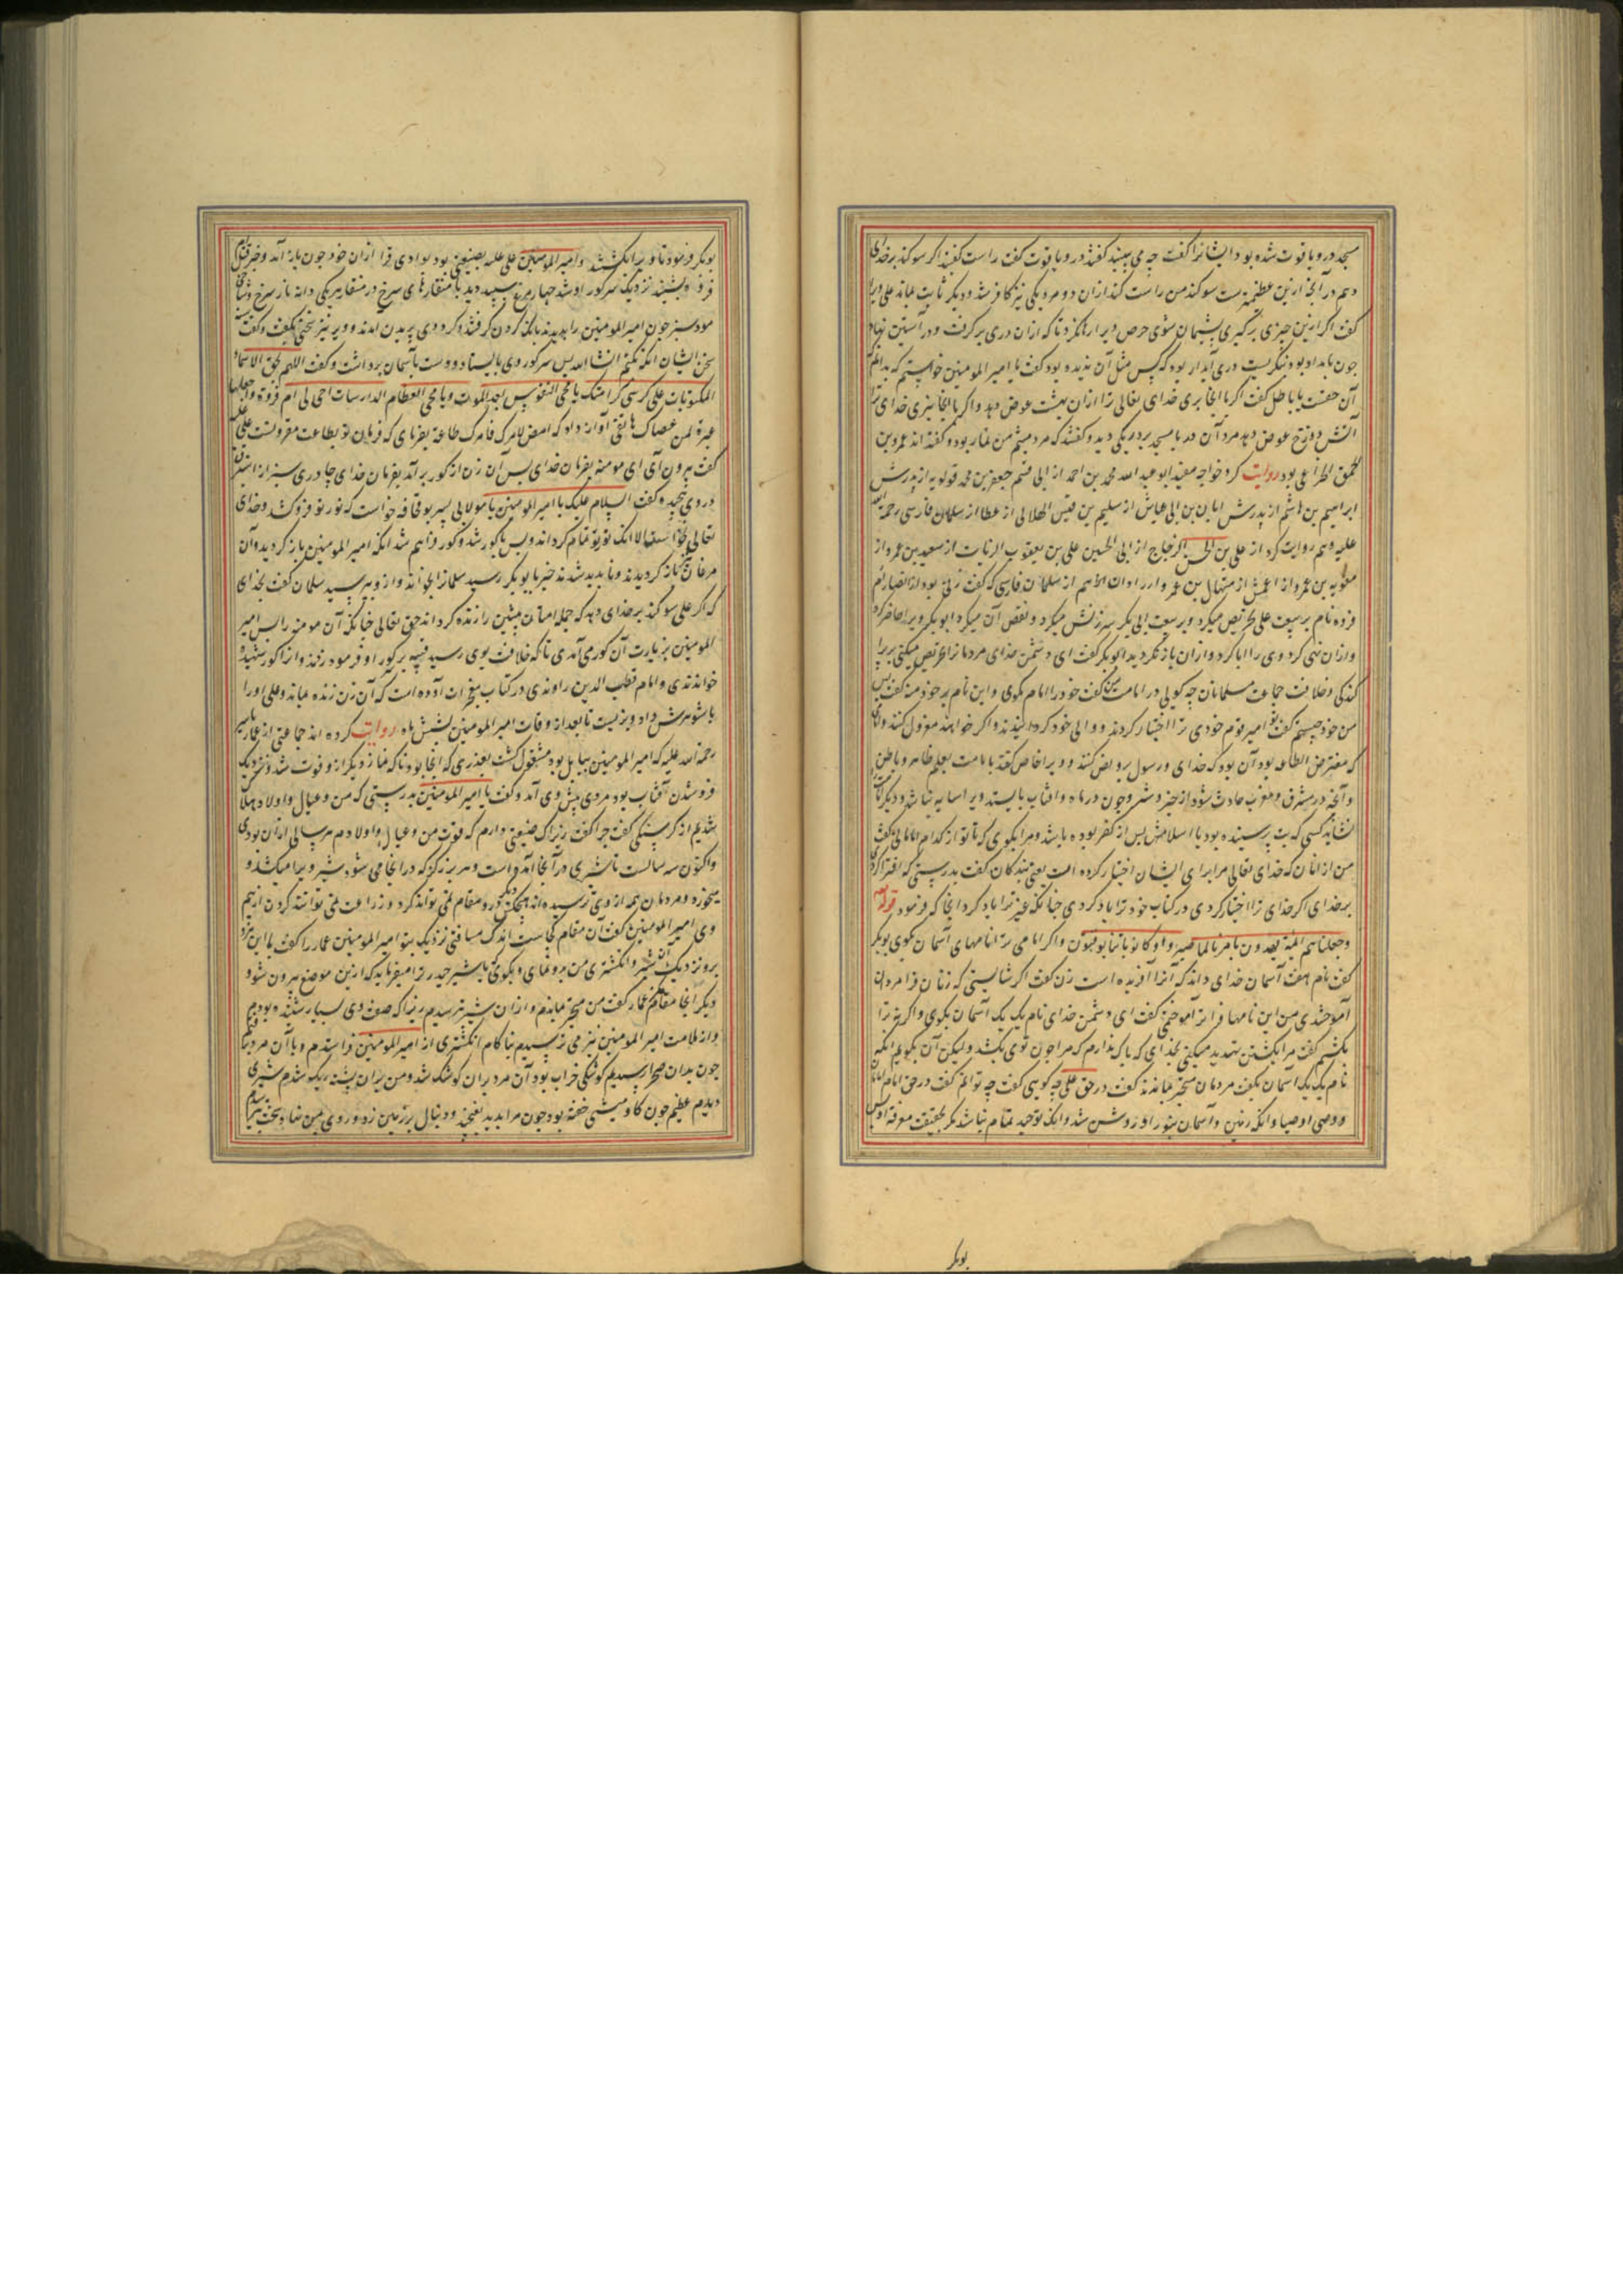 مسجد در و یاقوت شده بود ایشانرا گفت چه می بینید گفتند در و یاقوت گفت راست گفتید اگر سوگند بر خدای
دهم در آنچه ازین عظیمترست سوگند من راست کند ازان دو مرد یکی نیز کافر شد و دیگر ثابت بماند علی ویرا
گفت اگر ازین چیزی برگیری پشیمان شوی حرص ویرا رها نکرد تا که ازان دری برگرفت و در آستین نهاد
چون بامداد بود بنگریست دری آبدار بود که کس مثل آن ندیده بود گفت یا امیر المومنین خواستم که بدانم
آن حقست یا باطل گفت اگر با آنجا بری خدای تعالی ترا ازان بهشت عوض دهد و اگر با آنجا نبری خدای ترا
آتش دوزخ عوض دهد مرد آن در با مسجد برد ریکی دید و گفتند که مرد میثم تمار بود و گفته اند عمرو بن
الحمق الخزاعی بود روایت کرد خواجه مفید ابو عبد الله محمد بن احمد از ابی قسم جعفر بن محمد قولویه از پدرش
ابراهیم بن هاشم از پدرش ابان بن ابی عیاش از سلیم بن قیس الهلالی از عطا از سلمان فارسی رحمة الله
علیه و هم روایت کرد از علی بن الحسن الزجاج از ابی الحسین علی بن یعقوب الزیات از سعید بن عمرو از
معویه بن عمرو از اعمش از منهال بن عمرو از زاذان از سلمان فارسی که گفت زنی بود از انصار ام
فروه نام بر بیعت علی تحریص میکرد و بر بیعت ابی بکر سرزنش میکرد و نقض آن میکرد ابو بکر ویرا حاضر کرد
و ازان نهی کرد وی را ابا کرد و ازان باز نگردید ابو بکر گفت ای دشمن خدای مردمانرا تحریص میکنی بر پرا
کندگی و خلاف جماعت مسلمانان چه گویی در امامت من گفت خود را امام مگوی و این نام بر خود منه گفت پس
من خود چیستم گفت تو امیر قوم خودی ترا اختیار کردند و والی خود گردانیدند و اگر خواهند معزول کنند و امام
که مفترض الطاعه بود آن بود که خدای و رسول برو نص کنند و ویرا خاص کند بامامت بعلم ظاهر و باطن
و آنچه در مشرق و مغرب حادث شود از خیر و شر و چون در ماه و آفتاب بایستد ویرا سایه نباشد و دیگر امامت
نشاید کسی که بت پرستیده بود یا اسلامش پس از کفر بوده باشد و مرا بگوی که تا تو از کدام امامانی گفت
من از امامان که خدای تعالی مرا برای ایشان اختیار کرده است یعنی بندگان گفت بدرستی که افترا کردی
بر خدای اگر خدای ترا اختیار کردی در کتاب خود ترا یاد کردی چنانکه غیر ترا یاد کرد آنجا که فرمود قوله تعالی
وجعلناهم ائمة یهدون بامرنا لما صبروا وکانوا بآیاتنا یوقنون و اگر امامی مرا نامهای آسمان بگوی بوبکر
گفت نام هفت آسمان خدای داند که آنرا آفریده است زن گفت اگر شایستی که زنان فرا مردان
آموختندی من این نامها فرا تو آموختمی گفت ای دشمن خدای نام یک یک آسمان بگوی و اگر نه ترا
بکشم گفت مرا بکشتن تهدید میکنی بخدای که باک ندارم که مرا چون توی بکشد ولیکن آن بگویم آنکه
نام یک یک آسمان بگفت مردمان متحیر بماندند گفت در حق علی چه گویی گفت چه توانم گفت در حق امام امامان
و وصی اوصیا و آنکه زمین و آسمان بنور او روشن شد و آنکه توحید تمام نباشد مگر بحقیقت معرفة او پس
بوبکر
بوبکر فرمود تا ویرا بکشتند و امیر المومنین علی علیه بضیعتی بود بوادی قرا ازان خود چون باز آمد و خبر قتل ام
فروه بشنید نزدیک سر گور او شد چهار مرغ سپید دید با منقارهای سرخ در منقار هر یکی دانه نار سرخ و شاخی
مورد سبز چون امیر المومنین را بدیدند بانگ کردن گرفتند و گرد وی پریدن آمدند و ویرا نیز سخنی بگفت و گفت
سخن ایشان آنکه بکنم انشا الله پس سر گور وی بایستاد و دست بآسمان برداشت و گفت اللهم بحق الاسماء
المکتوبات علی کرسی کرامتک یا محیی النفوس بعد الموت و یا محیی العظام الدارسات احی لی ام فروة واجعلها
عبرة لمن عصاک هاتفی آواز داد که امض لامرک فامرک طاعة بفرمای که فرمان تو بطاعت مقرونست علی
گفت بیرون آی ای مومنه بفرمان خدای پس آن زن از گور برآمد بفرمان خدای چادری سبز از استبرق
در وی پیچیده گفت السلام علیک یا امیر المومنین یا مولای پسر بو قحافه خواست که نور تو فرو کشد و خدای
تعالی نخواست الا آنکه نور تو تمام گرداند و پس با گور شد و گور فراهم شد آنکه امیر المومنین باز گردید و آن
مرغان باز گردیدند و ناپدید شدند خبر با بوبکر رسید سلمانرا بخواند و ازو بپرسید سلمان گفت بخدای
که اگر علی سوگند بر خدای دهد که جمله امتان پیشین را زنده گرداند حق تعالی چنانکه آن مومنه را پس امیر
المومنین بزیارت آن گور می آمدی تا که خلافت بوی رسید قبه بر گور او فرمود زدند و انرا گور شهیده
خواندندی و امام قطب الدین راوندی در کتاب خود آورده است که آن زن زنده بماند و علی اورا
با شوهرش داد و بزیست تا بعد از وفات امیر المومنین بشش ماه روایت کرده اند جماعتی از عمار یاسر
رحمة الله علیه که امیر المومنین ببابل بود مشغول گشت بعذری که آنجا بود تا که نماز دیگر ازو فوت شد و نزدیک
فرو شدن آفتاب بود مردی پیش وی آمد و گفت یا امیر المومنین بدرستی که من و عیال و اولاد هلاک
شدیم از گرسنگی گفت چرا گفت زیراک ضیعتی دارم که قوت من و عیال و اولادم هر سالی ازان بودی
و اکنون سه سالست تا شیری در آنجا آمده است و هر برزگر که در آنجا می شود شیر ویرا میکشد و
میخورد و مردمان همه از وی ترسیده اند هیچکس درو مقام نمی تواند کرد و زراعت نمی تواند کردن از بیم
وی امیر المومنین گفت آن مقام کجاست اندک مسافتی نزدیک بتو امیر المومنین عمار را گفت با این مرد
برو نزدیک آن شیر و انگشتری من برو نمای و بگوی یا شیر حیدر ترا میفرماید که ازین موضع بیرون شو و
دیگر آنجا مقام مکن عمار گفت من متحیر بماندم و ازان شیر بترسیدم زیراک صفت وی بسیار شنیده بودیم
و از ملامت امیر المومنین نیز می ترسیدم ناکام انگشتری از امیر المومنین فرا ستدم و با آن مرد برفتم
چون بدان صحرا رسیدیم کوشکی خراب بود آن مرد بران کوشک شد و من بران پشته نزدیک شدم شیری
دیدم عظیم چون گاومیشی خفته بود چون مرا بدید بغرید و دنبال بر زمین زد و روی بمن نهاد سخت بترسیدم